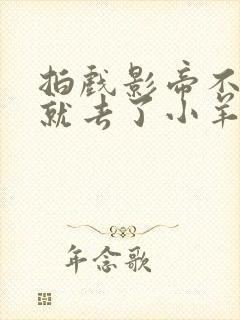 拍戏影帝不
就去了小羊
年念歌